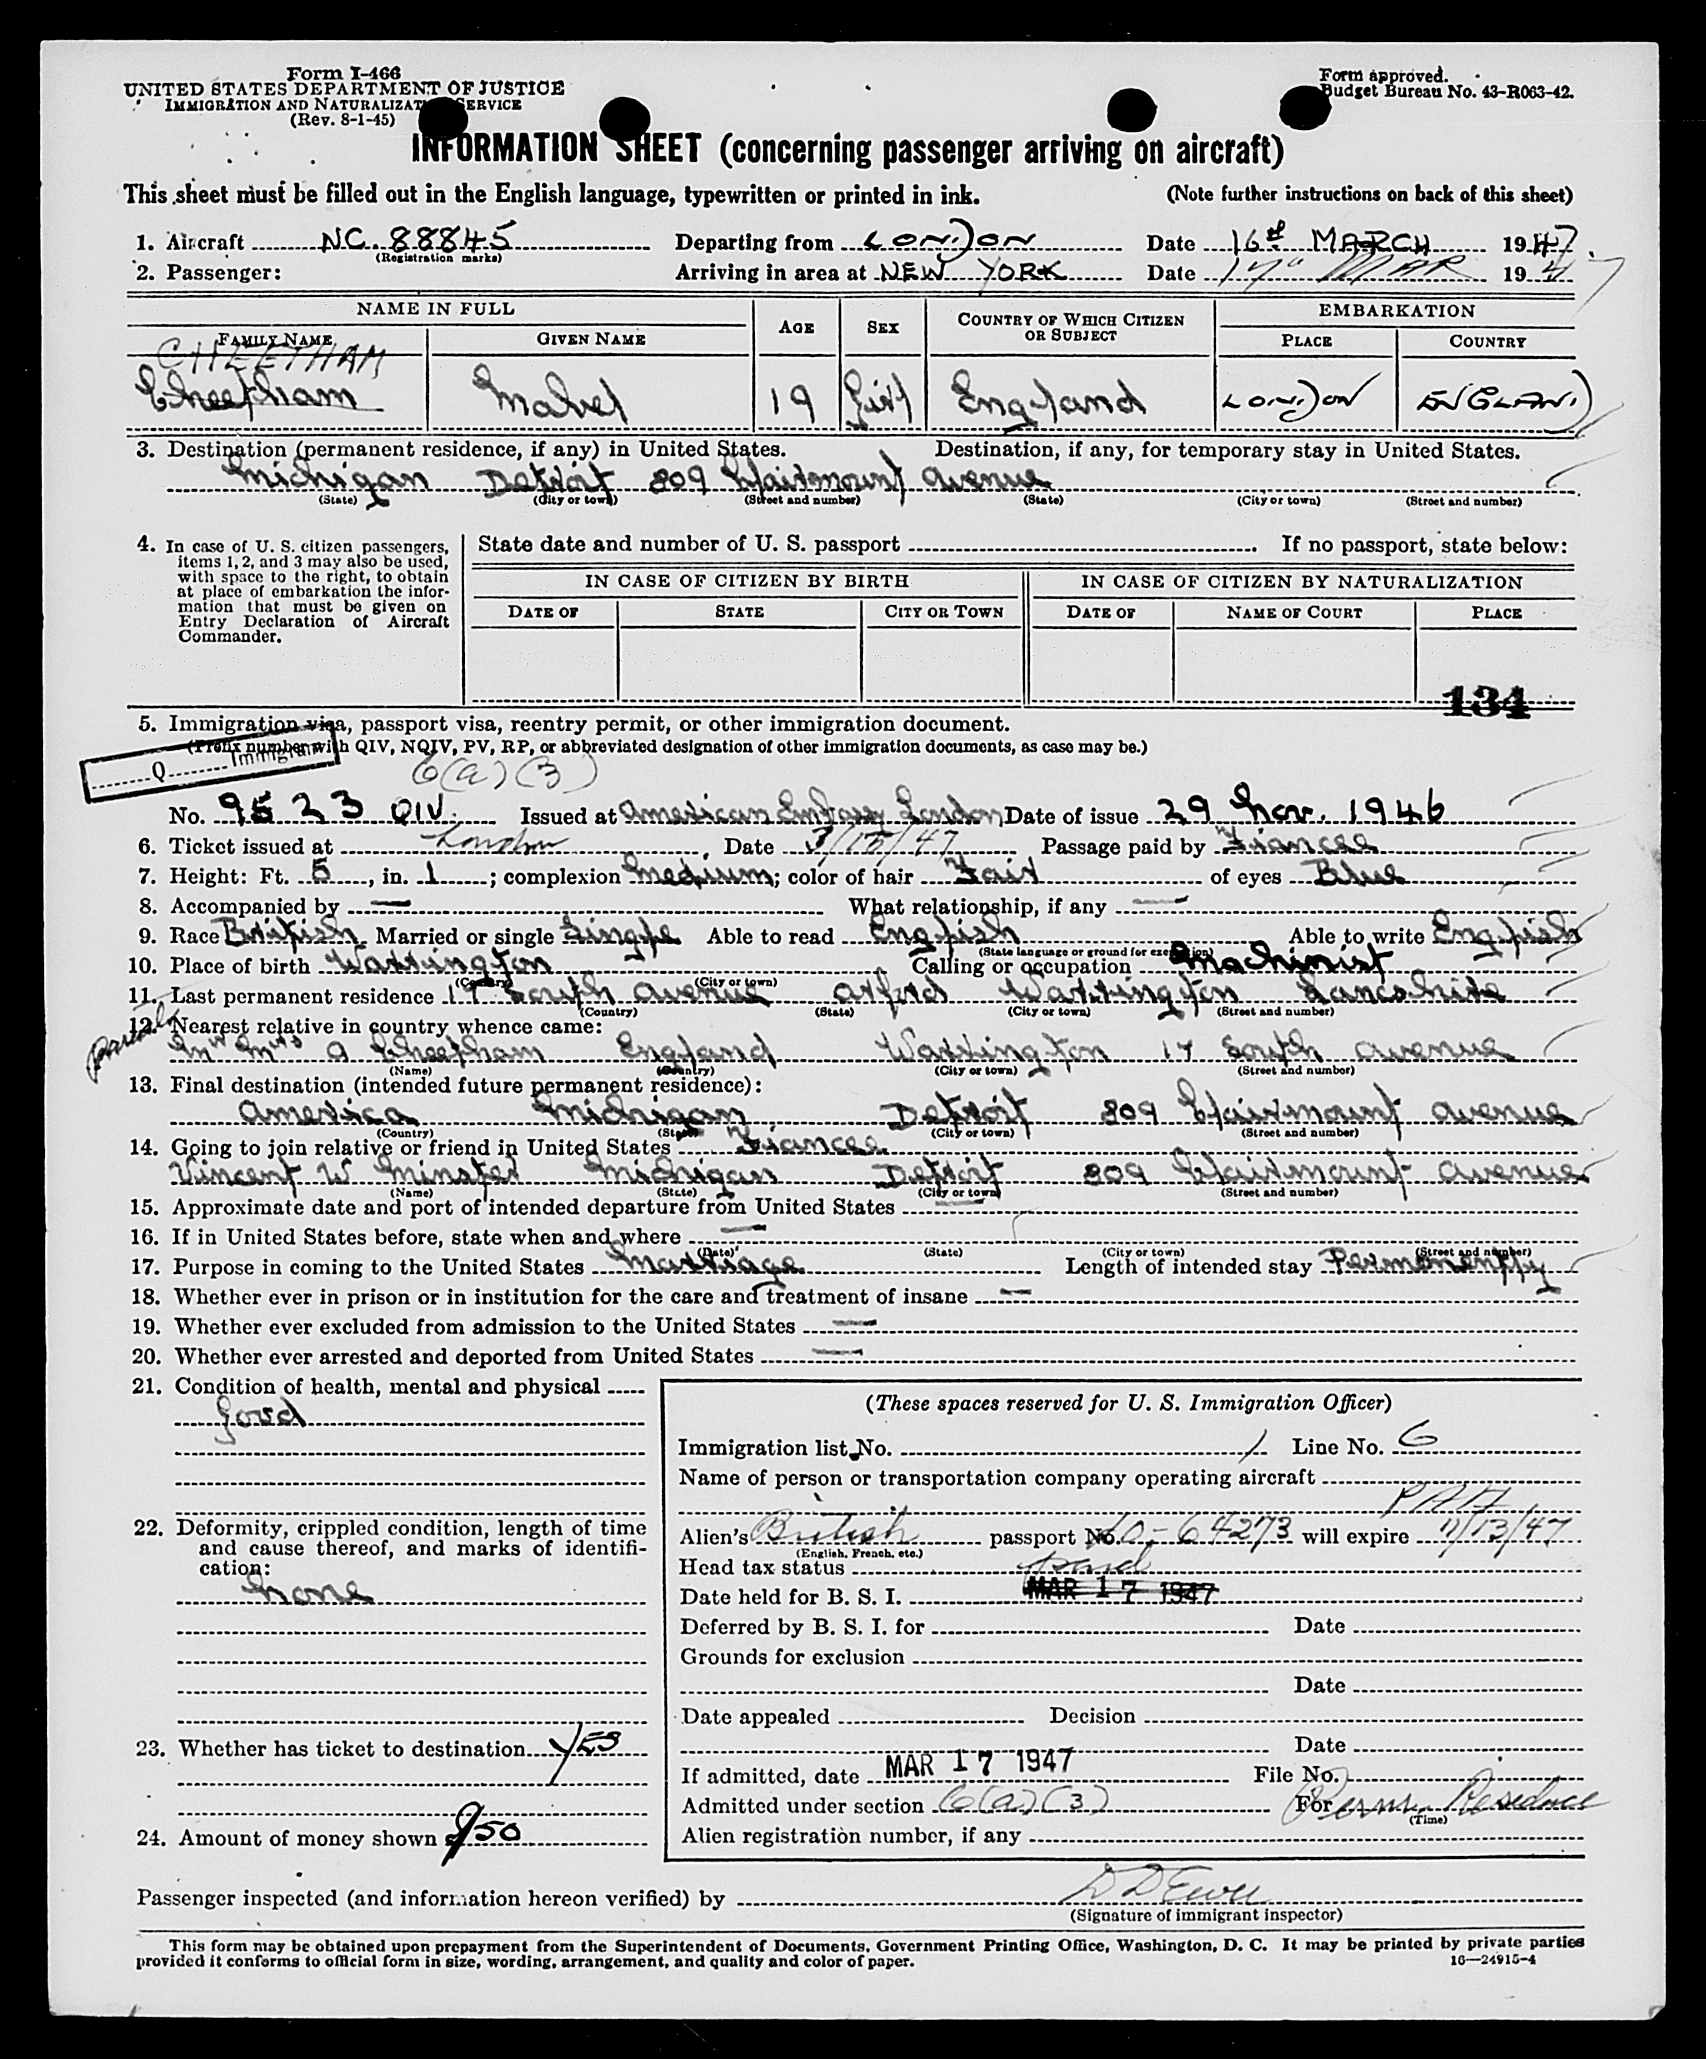 Form I-466
UNITED STATES DEPARTMENT OF JUSTICE
IMMIGRATION AND NATURALIZATION SERVICE
(Rev. 8-1-45)
Form approved.
Budget Bureau No. 43-R063-42.
INFORMATION SHEET (concerning passenger arriving on aircraft)
This sheet must be filled out in the English language, typewritten or printed in ink. (Note further instructions on back of this sheet)
1. Aircraft NC. 88845 Departing from LONDON Date 16th MARCH 1947.
(Registration marks)
2. Passenger: Arriving in area at NEW YORK Date 17" MAR 1947
NAME IN FULL AGE SEX COUNTRY OF WHICH CITIZEN OR SUBJECT EMBARKATION
FAMILY NAME GIVEN NAME PLACE COUNTRY
CHEETHAM
Cheetham Mabel 19 Girl England LONDON ENGLAND
3. Destination (permanent residence, if any) in United States. Destination, if any, for temporary stay in United States.
Michigan Detroit 809 Clairmount Avenue
(State) (City or town) (Street and number) (State) (City or town) (Street and number)
4. In case of U. S. citizen passengers, items 1, 2, and 3 may also be used, with space to the right, to obtain at place of embarkation the information that must be given on Entry Declaration of Aircraft Commander.
State date and number of U. S. passport . If no passport, state below:
IN CASE OF CITIZEN BY BIRTH IN CASE OF CITIZEN BY NATURALIZATION
DATE OF STATE CITY OR TOWN DATE OF NAME OF COURT PLACE
134
5. Immigration visa, passport visa, reentry permit, or other immigration document.
(Prefix number with QIV, NQIV, PV, RP, or abbreviated designation of other immigration documents, as case may be.)
Q Immigrant
6(a)(3)
No. 9523 QIV. Issued at American Embassy London Date of issue 29 Nov. 1946
6. Ticket issued at London Date 3/15/47 Passage paid by Fiancee
7. Height: Ft. 5, in. 1; complexion Medium; color of hair Fair of eyes Blue
8. Accompanied by — What relationship, if any —
9. Race British Married or single Single Able to read English Able to write English
(State language or ground for exemption)
10. Place of birth Warrington Calling or occupation Machinist
(Country) (City or town)
11. Last permanent residence 17 South Avenue Orford Warrington Lancashire
(Country) (State) (City or town) (Street and number)
12. Nearest relative in country whence came:
parents
Mr Mrs A Cheetham England Warrington 17 South Avenue
(Name) (Country) (City or town) (Street and number)
13. Final destination (intended future permanent residence):
America Michigan Detroit 809 Clairmount Avenue
(Country) (State) (City or town) (Street and number)
14. Going to join relative or friend in United States Fiancee
Vincent W Minster Michigan Detroit 809 Clairmount Avenue
(Name) (State) (City or town) (Street and number)
15. Approximate date and port of intended departure from United States —
16. If in United States before, state when and where —
(Date) (State) (City or town) (Street and number)
17. Purpose in coming to the United States Marriage Length of intended stay Permanently
18. Whether ever in prison or in institution for the care and treatment of insane —
19. Whether ever excluded from admission to the United States —
20. Whether ever arrested and deported from United States —
21. Condition of health, mental and physical
Good
22. Deformity, crippled condition, length of time and cause thereof, and marks of identification:
None
23. Whether has ticket to destination YES
24. Amount of money shown $50
(These spaces reserved for U. S. Immigration Officer)
Immigration list No. 1 Line No. 6
Name of person or transportation company operating aircraft
PAA
Alien's British passport No. LO-64273 will expire 11/13/47
(English, French, etc.)
Head tax status paid
Date held for B. S. I. MAR 17 1947
Deferred by B. S. I. for Date
Grounds for exclusion
Date
Date appealed Decision
Date
If admitted, date MAR 17 1947 File No.
Admitted under section 6(a)(3) For Perm. Residence
(Time)
Alien registration number, if any
Passenger inspected (and information hereon verified) by
(Signature of immigrant inspector)
This form may be obtained upon prepayment from the Superintendent of Documents, Government Printing Office, Washington, D. C. It may be printed by private parties
provided it conforms to official form in size, wording, arrangement, and quality and color of paper. 16—24915-4